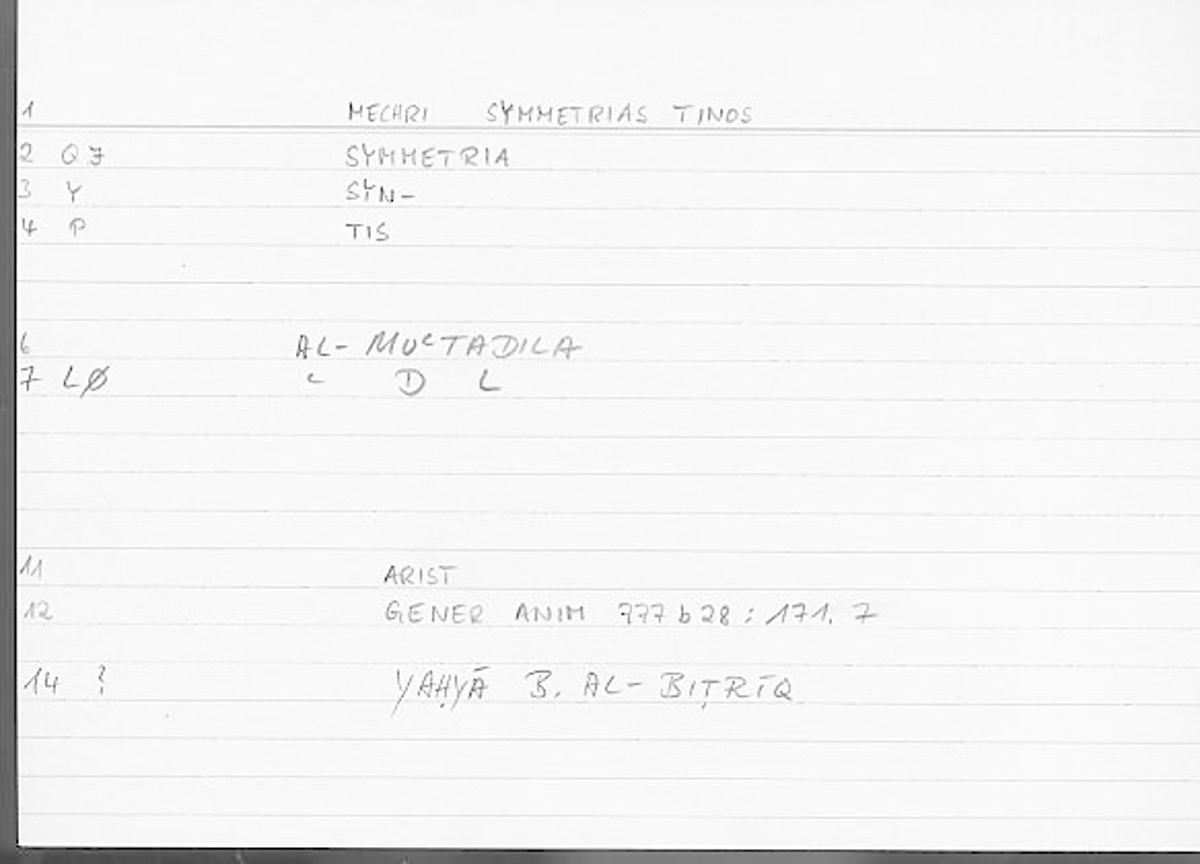 1 MECHRI SYMMETRIAS TINOS
2 Q7 SYMMETRIA
3 Y SYN-
4 P TIS
6 AL- MUʿTADILA
7 LØ ʿ D L
11 ARIST
12 GENER ANIM 777 b 28 : 171. 7
14 ? YAḤYĀ B. AL- BIṬRĪQ